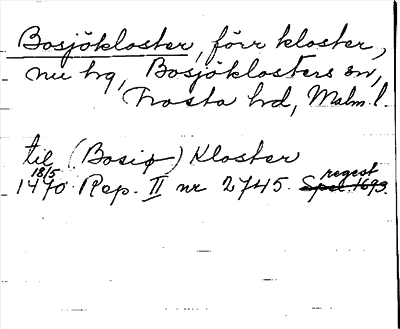 Bosjökloster, förr kloster,
nu hg, Bosjöklosters sn,
Frosta hd, Malm. l.
til (Bosiø) Kloster
18/5 regest
1470 Rep. II nr 2745. Spel. 1693.